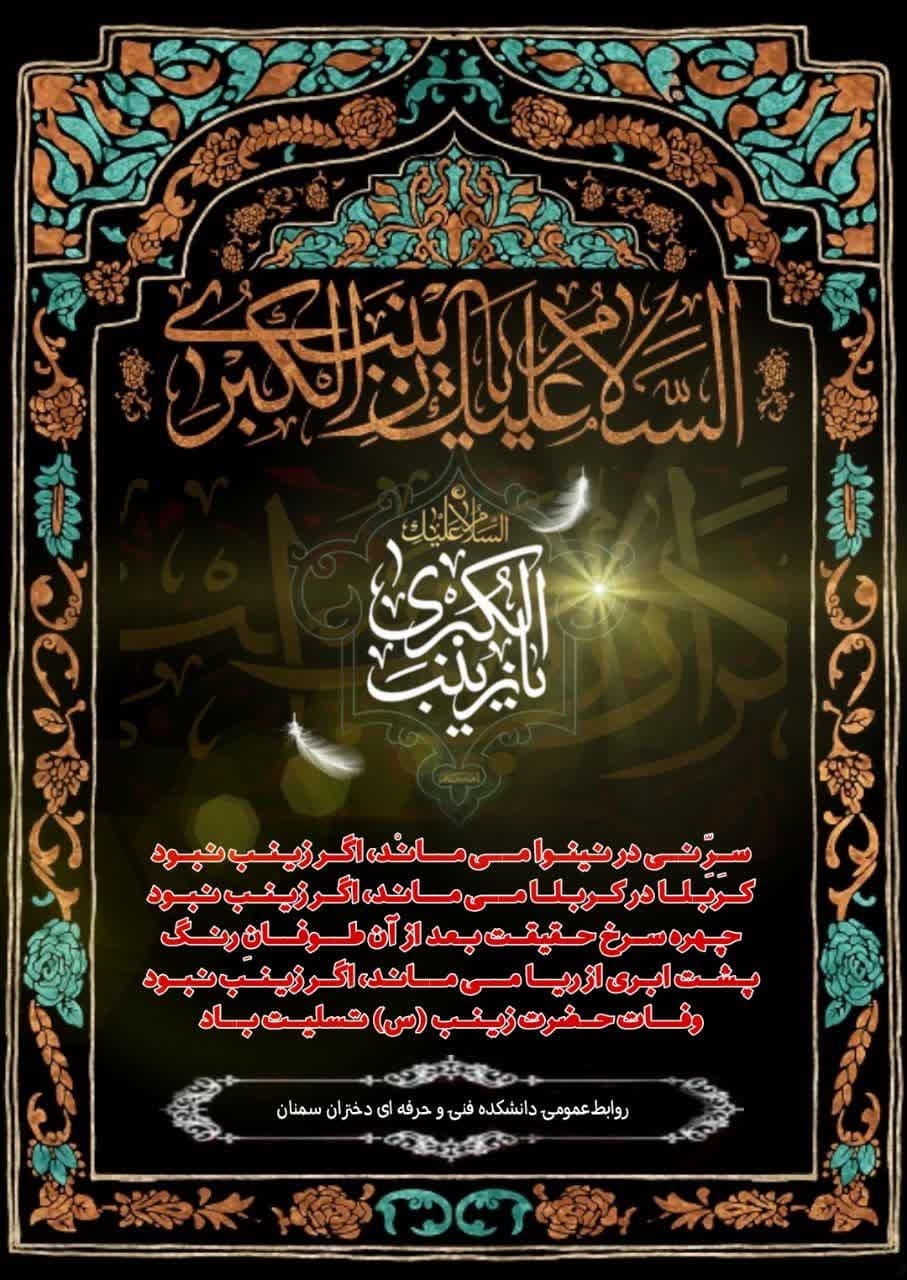 السَّلامُ عَلَیْكِ یا زینَبَ الکُبْریٰ
السلام علیكِ
یا زینب الکبری
سرِّ نی در نینوا می ماند، اگر زینب نبود
کربلا در کربلا می ماند، اگر زینب نبود
چهره سرخ حقیقت بعد از آن طوفانِ رنگ
پشت ابری از ریا می ماند، اگر زینب نبود
وفات حضرت زینب (س) تسلیت باد
روابط عمومی دانشکده فنی و حرفه ای دختران سمنان